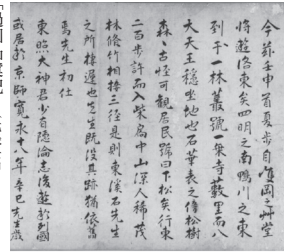 今茲壬申首夏步自雙岡之艸堂
將遊洛東矣四明之南鴨川之東
到于一林叢號一乗寺數里而八
大天王穏坐地也石華表之傍松樹
森〻古怪可觀居民號曰下松矣行東
二百步許而入柴扃中山深人稀茂
林脩竹相接三徑是則東溪石先生
之所棲遲也先生既没其跡猶依舊
焉先生初仕
東照大神君少有隠淪志後遊於列國
或居於京師寛永十八年辛巳先生歳